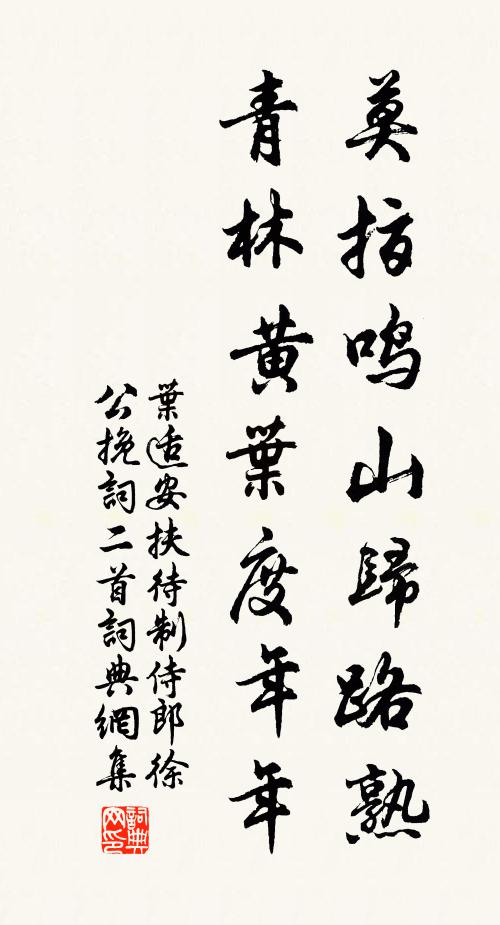 莫指鳴山歸路熟
青林黃葉度年年
葉適安扶待制侍郎徐
公挽詞二首詞典網集
詞典
网印